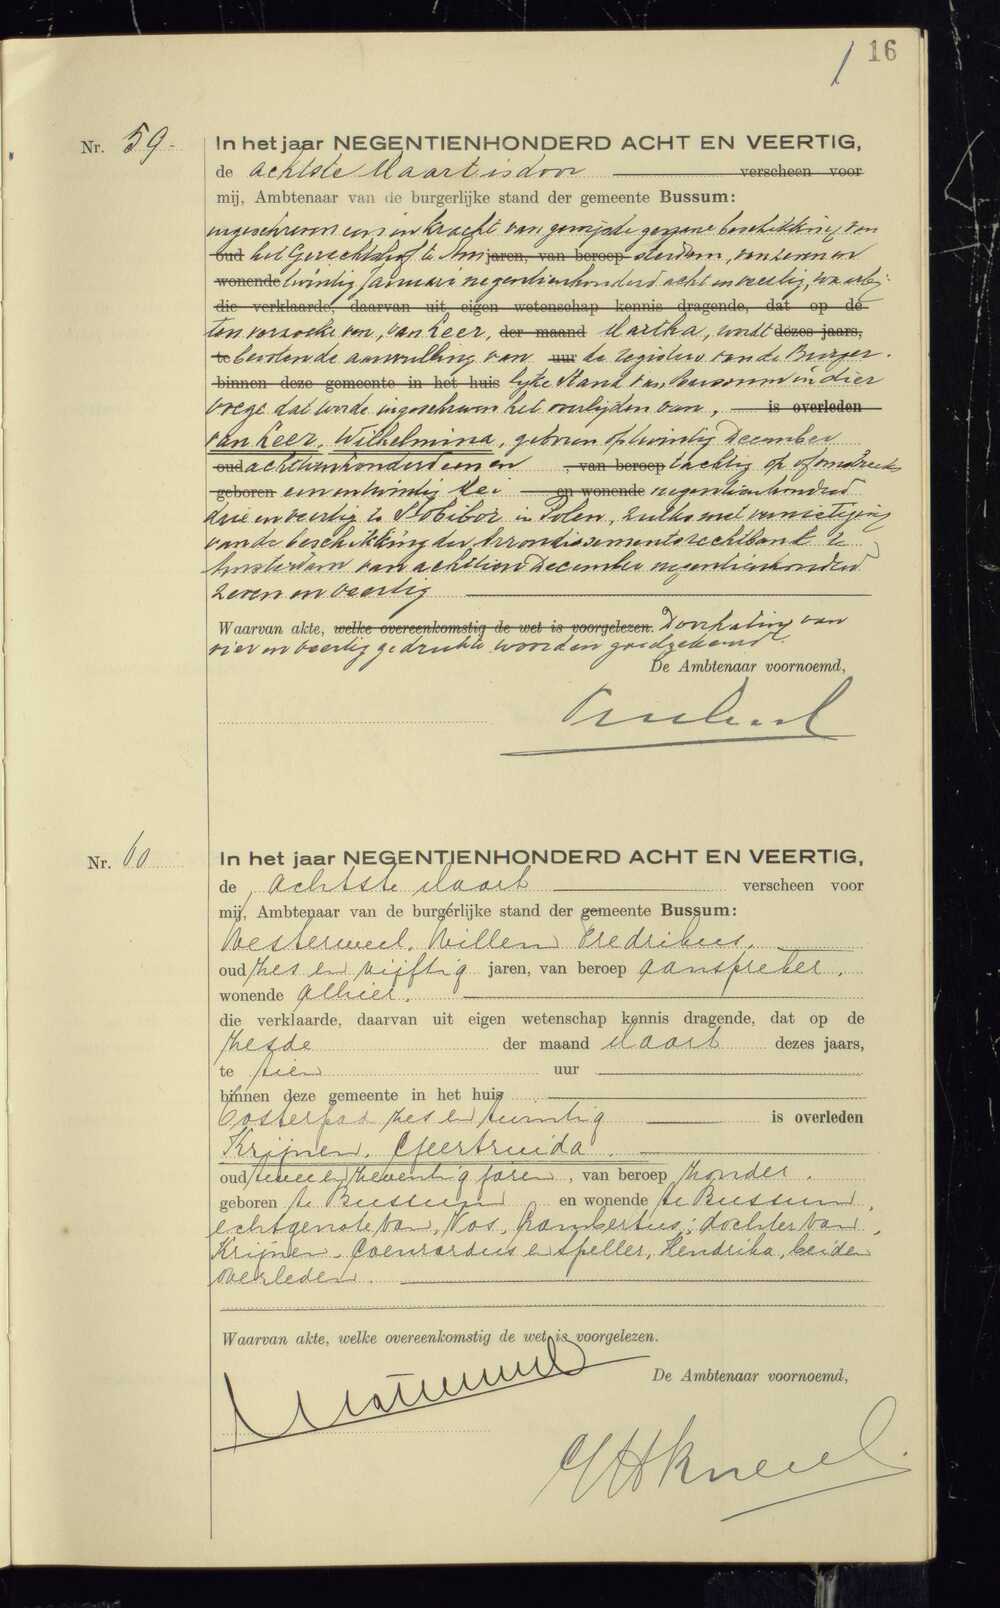 16
Nr. 59.
In het jaar NEGENTIENHONDERD ACHT EN VEERTIG,
de achtste Maart is door verscheen voor
mij, Ambtenaar van de burgerlijke stand der gemeente Bussum:
ingeschreven een in kracht van gewijsde gegane beschikking van
oud het Gerechtshof te Amjaren, van beroep sterdam, van zeven en
wonende twintig Januari negentienhonderd acht en veertig, waarbij
die verklaarde, daarvan uit eigen wetenschap kennis dragende, dat op de
ten verzoeke van, van Leer, der maand Martha, wordt dezes jaars,
te bevolen de aanvulling van uur de registers van de Burger
binnen deze gemeente in het huis lijke Stand van Bussum in dier
voege dat worde ingeschreven het overlijden van, is overleden
van Leer, Wilhelmina, geboren op twintig December
oud achttienhonderd een en , van beroep tachtig op of omstreeks
geboren een en twintig Mei en wonende negentienhonderd
drie en veertig te Sobibor in Polen, zulks met vernietiging
van de beschikking der Arrondissementsrechtbank te
Amsterdam van achttien December negentienhonderd
zeven en veertig
Waarvan akte, welke overeenkomstig de wet is voorgelezen. Doorhaling van
vier en veertig gedrukte woorden goedgekeurd.
De Ambtenaar voornoemd,
Nr. 60
In het jaar NEGENTIENHONDERD ACHT EN VEERTIG,
de achtste Maart verscheen voor
mij, Ambtenaar van de burgerlijke stand der gemeente Bussum:
Westerweel, Willem Fredrikus,
oud zes en vijftig jaren, van beroep aanspreker,
wonende alhier.
die verklaarde, daarvan uit eigen wetenschap kennis dragende, dat op de
zesde der maand Maart dezes jaars,
te tien uur
binnen deze gemeente in het huis
Oosterpad zes en twintig is overleden
Krijnen, Geertruida,
oud twee en zeventig jaren, van beroep zonder,
geboren te Bussum en wonende te Bussum,
echtgenote van, Vos, Lambertus; dochter van,
Krijnen, Coenrardus en Speller, Hendrika, beiden
overleden.
Waarvan akte, welke overeenkomstig de wet is voorgelezen.
De Ambtenaar voornoemd,